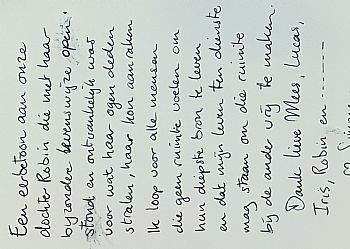 Een eerbetoon aan onze
dochter Robin die met haar
bijzondere levenswijze open
stond en ontvankelijk was
voor wat haar ogen deden
stralen, haar kon aanraken
Ik loop voor alle mensen
die geen ruimte voelen om
hun diepste bron te leven
en dat mijn leven ten dienste
mag staan om die ruimte
bij de ander vrij te maken.
Dank lieve Mees, Lucas,
Iris, Robin en ------